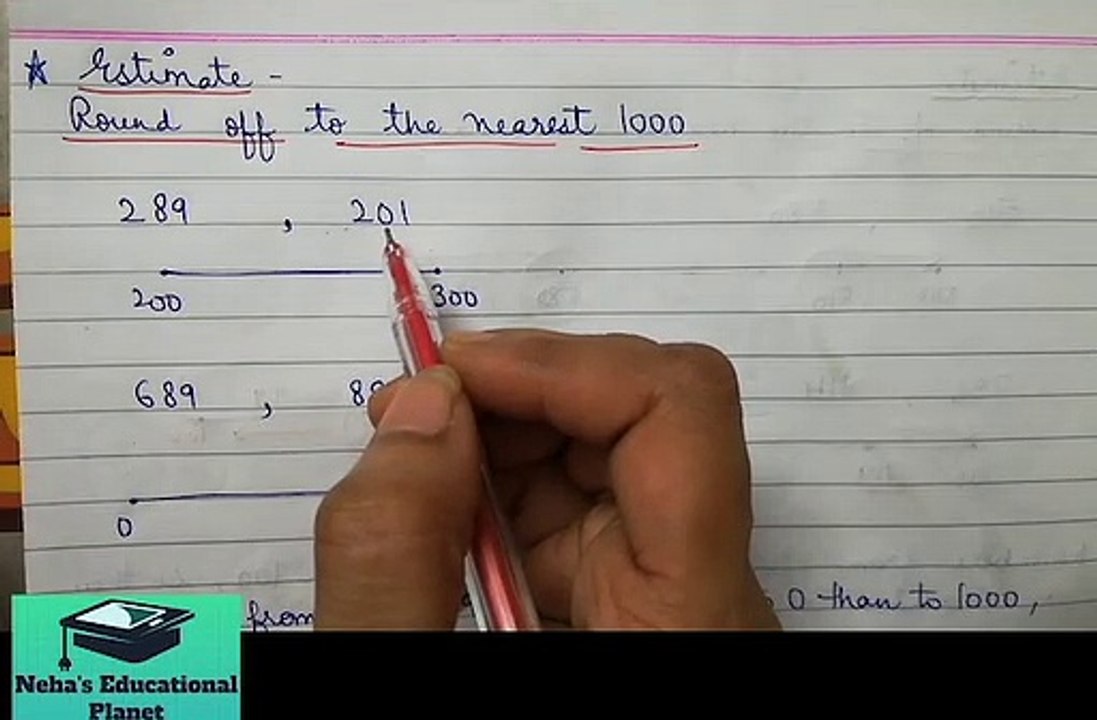 ☆ Estimate -
Round off to the nearest 1000
289 , 201
200 300
689 ,
0
from 0 than to 1000,
Neha's Educational
Planet